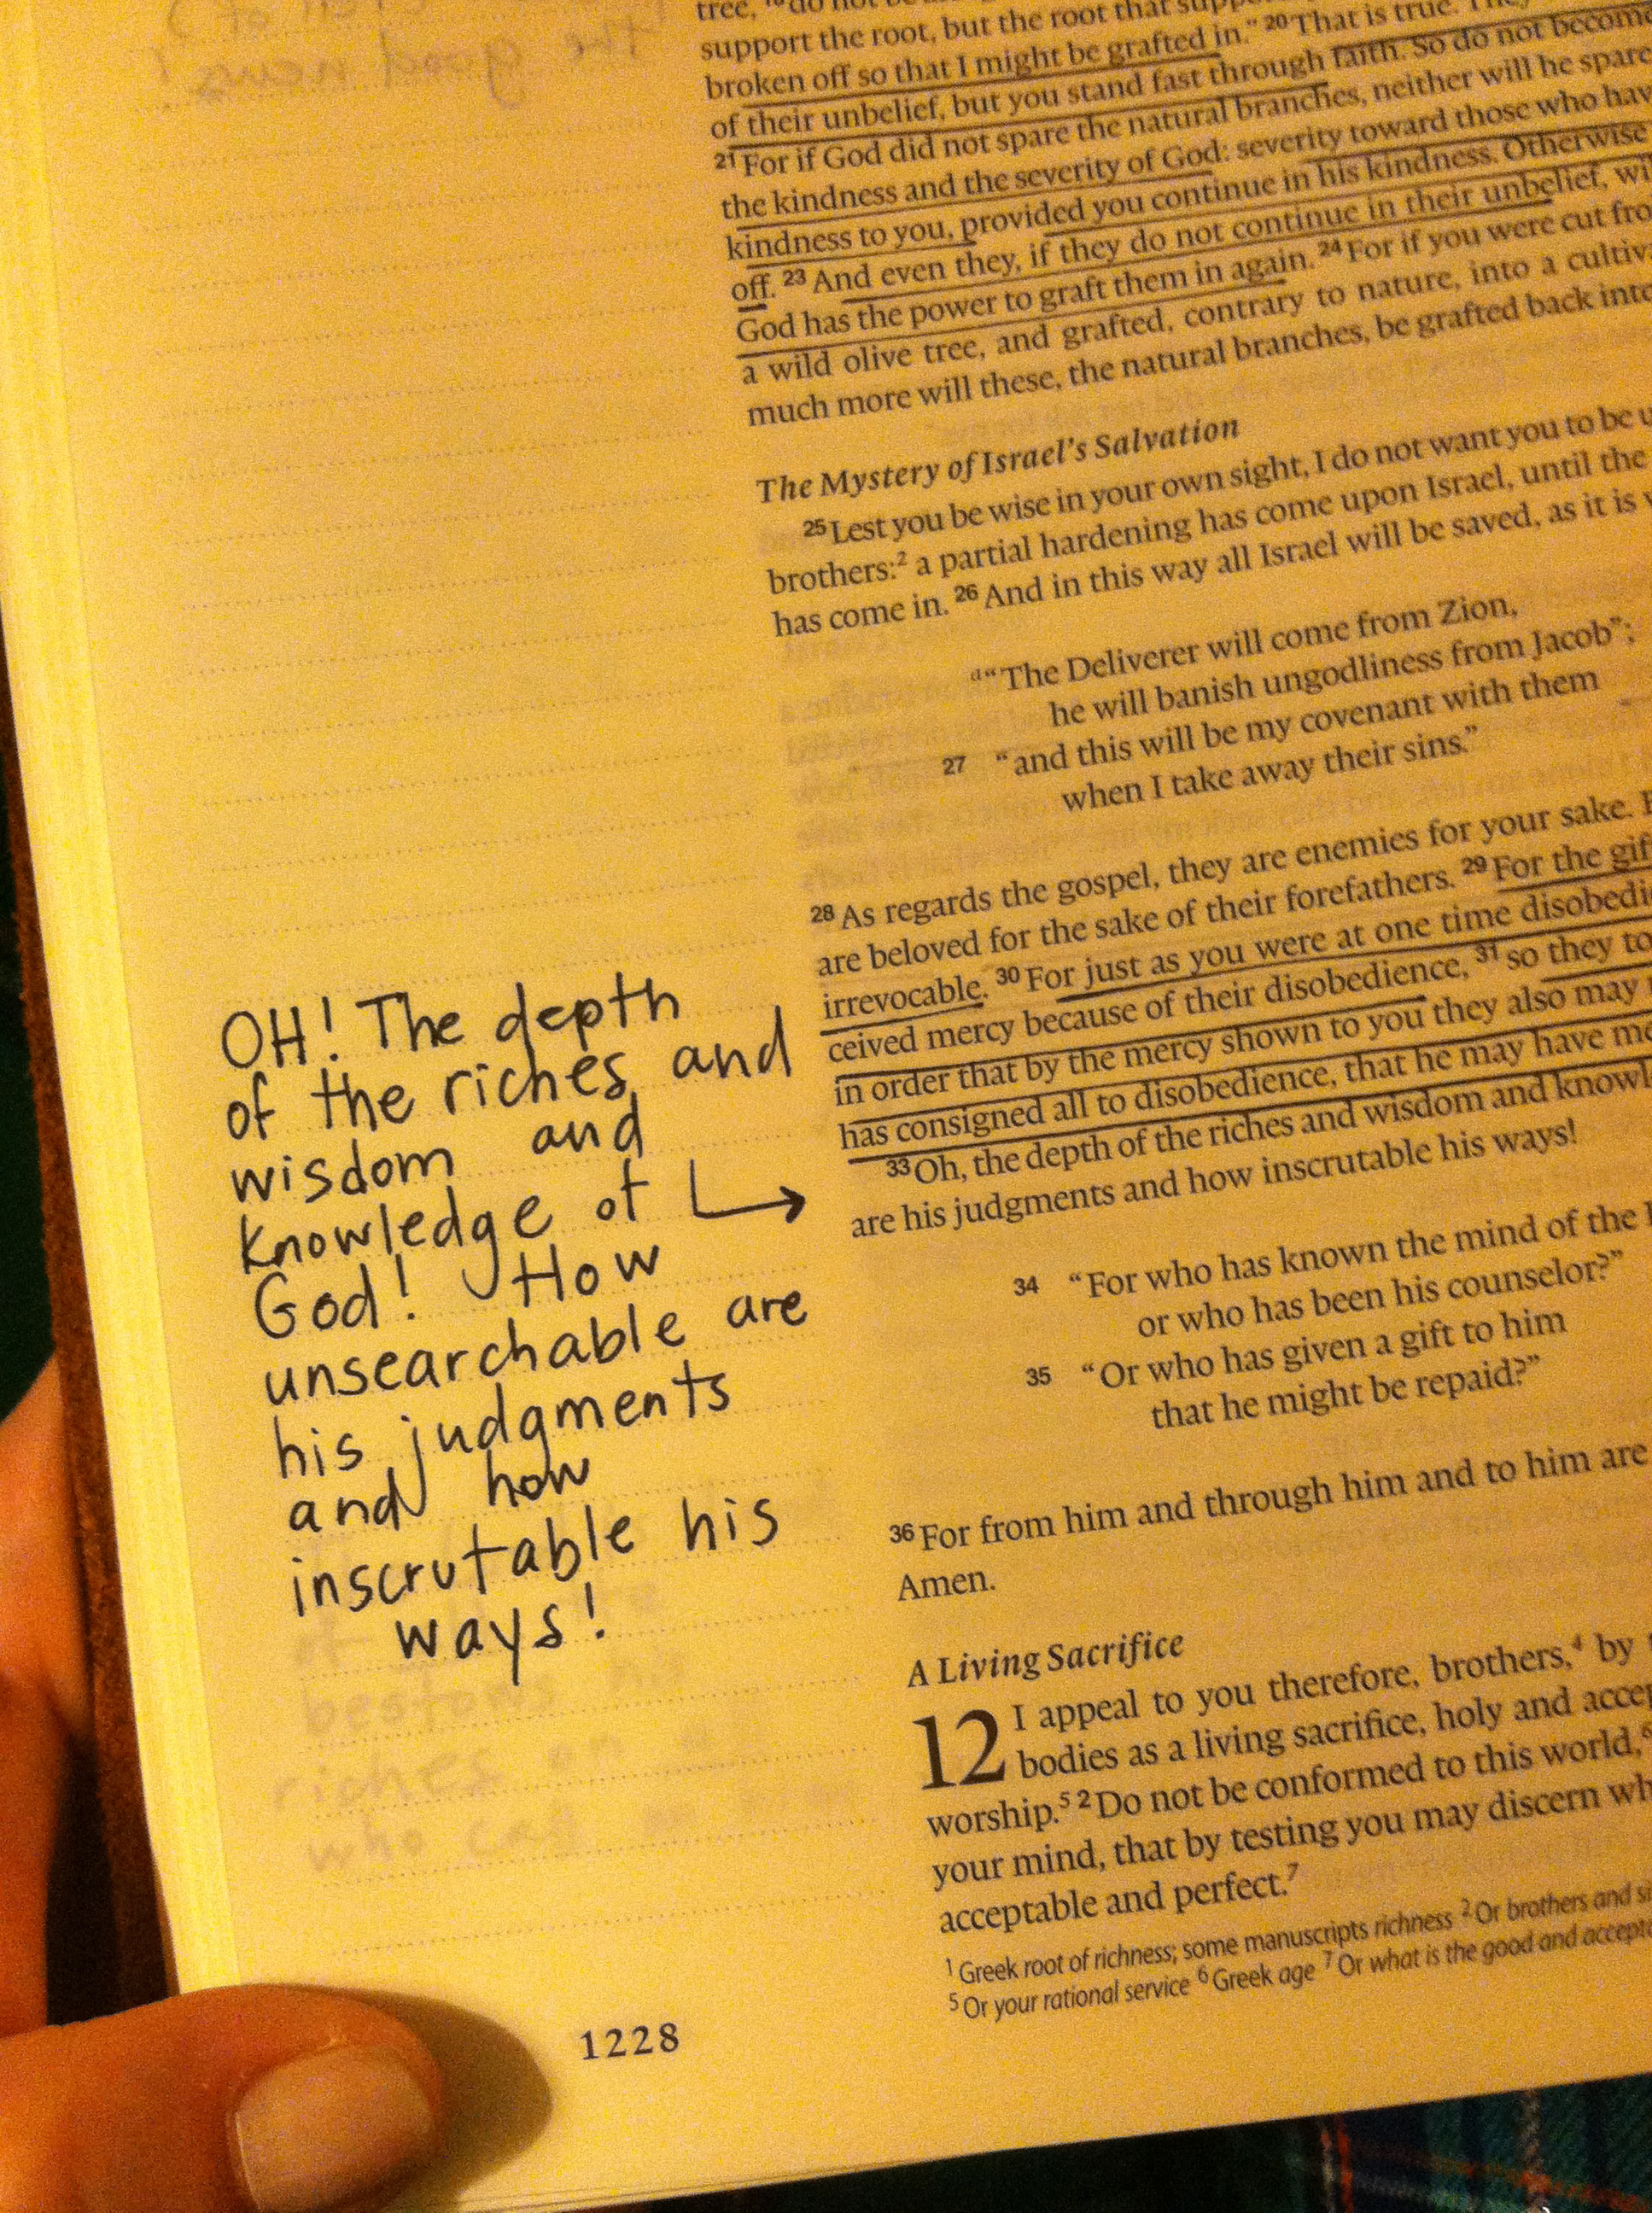 support the root, but the root that
broken off so that I might be grafted in." 20 That is true.
of their unbelief, but you stand fast through faith. So do not
21 For if God did not spare the natural branches, neither will he spare
the kindness and the severity of God: severity toward those who
kindness to you, provided you continue in his kindness. Otherwise
off. 23 And even they, if they do not continue in their unbelief,
God has the power to graft them in again. 24 For if you were cut
a wild olive tree, and grafted, contrary to nature, into a
much more will these, the natural branches, be grafted back into
The Mystery of Israel's Salvation
25 Lest you be wise in your own sight, I do not want you to be
brothers:2 a partial hardening has come upon Israel, until the
has come in. 26 And in this way all Israel will be saved, as it is
d "The Deliverer will come from Zion,
he will banish ungodliness from Jacob";
27 "and this will be my covenant with them
when I take away their sins."
28 As regards the gospel, they are enemies for your sake.
are beloved for the sake of their forefathers. 29 For the
irrevocable. 30 For just as you were at one time
ceived mercy because of their disobedience, 31 so they
in order that by the mercy shown to you they also may
has consigned all to disobedience, that he may have
33 Oh, the depth of the riches and wisdom and
are his judgments and how inscrutable his ways!
34 "For who has known the mind of the
or who has been his counselor?"
35 "Or who has given a gift to him
that he might be repaid?"
36 For from him and through him and to him are
Amen.
A Living Sacrifice
12 I appeal to you therefore, brothers,4 by
bodies as a living sacrifice, holy and
worship.5 2 Do not be conformed to this world,6
your mind, that by testing you may discern
acceptable and perfect.7
1 Greek root of richness; some manuscripts richness 2 Or brothers and
5 Or your rational service 6 Greek age 7 Or what is the good and
OH! The depth
of the riches and
wisdom and
knowledge of
God! How
unsearchable are
his judgments
and how
inscrutable his
ways!
1228